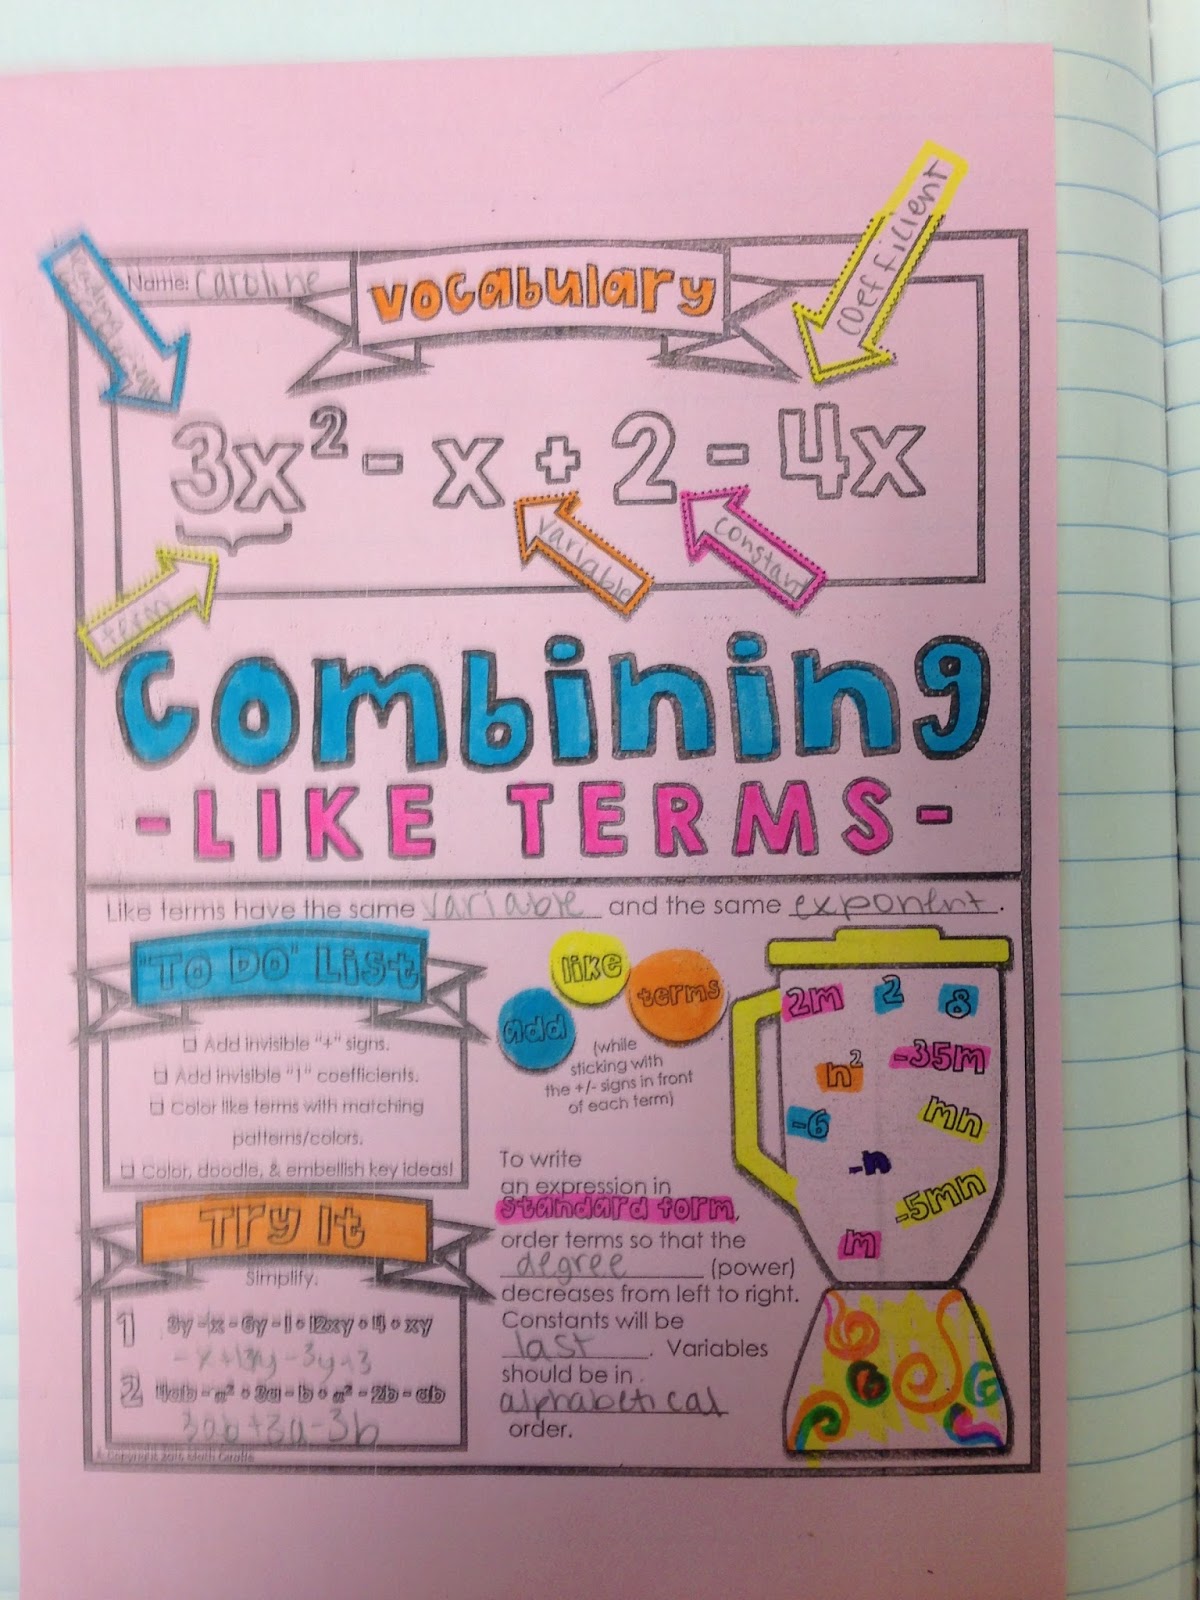 coefficient
Name: Caroline
vocabulary
leading coefficient
3x² - x + 2 - 4x
variable
constant
term
combining
- LIKE TERMS -
Like terms have the same variable and the same exponent.
"TO DO" List
Add invisible "+" signs.
Add invisible "1" coefficients.
Color like terms with matching
patterns/colors.
Color, doodle, & embellish key ideas!
Try It
Simplify.
1 3y - x - 6y - 1 + 12xy + 4 + xy
2 4ab - a² + 3a - b + a² - 2b - ab
3ab + 3a - 3b
© Copyright 2015 Math Giraffe
add
like
terms
(while
sticking with
the +/- signs in front
of each term)
To write
an expression in
standard form,
order terms so that the
degree (power)
decreases from left to right.
Constants will be
last. Variables
should be in
alphabetical
order.
2m 2 8
n² -35m
-6 mn
-n
-5mn
m